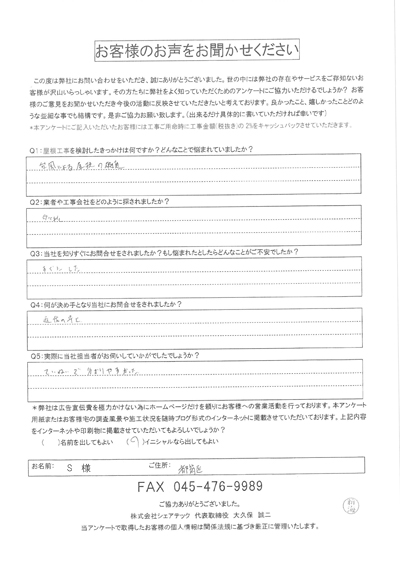 お客様のお声をお聞かせください
この度は弊社にお問い合わせをいただき、誠にありがとうございました。世の中には弊社の存在やサービスをご存知ないお
客様が沢山いらっしゃいます。その方たちに弊社をよく知っていただくためのアンケートにご協力いただけるでしょうか？ お客
様のご意見をお聞かせいただき今後の活動に反映させていただきたいと考えております。良かったこと、嬉しかったことどのよ
うな些細な事でも結構です。是非ご協力お願い致します。（出来るだけ具体的に書いていただければ幸いです）
*本アンケートにご記入いただいたお客様には工事ご用命時に工事金額（税抜き）の2%をキャッシュバックさせていただきます。
Q1：屋根工事を検討したきっかけは何ですか？どんなことで悩まれていましたか？
台風による屋根の破損
Q2：業者や工事会社をどのように探されましたか？
Q3：当社を知りすぐにお問合せをされましたか？もし悩まれたとしたらどんなことがご不安でしたか？
すぐにした
Q4：何が決め手となり当社にお問合せをされましたか？
Q5：実際に当社担当者がお伺いしていかがでしたでしょうか？
ていねいで
*弊社は広告宣伝費を極力かけない為にホームページだけを頼りにお客様への営業活動を行っております。本アンケート
用紙またはお客様宅の調査風景や施工状況を随時ブログ形式のインターネットに掲載させていただいております。上記内容
をインターネットや印刷物に掲載させていただいてもよろしいでしょうか？
（　）名前を出してもよい　（○）イニシャルなら出してもよい
お名前： S 様　ご住所：
FAX 045-476-9989
ご協力ありがとうございました。
株式会社シェアテック 代表取締役 大久保 誠二
当アンケートで取得したお客様の個人情報は関係法規に基づき厳正に管理いたします。